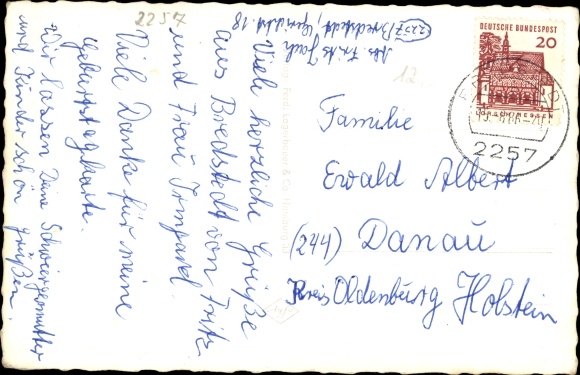 2257
Abs. Fritz
2257 Bredstedt,
18
Viele herzliche Grüße
aus Bredstedt von Fritz
und Frau
Viele Danke für meine
Geburtstagkarte.
Wir lassen Deine Schwiegermutter
und Kinder schön grüßen.
DEUTSCHE BUNDESPOST
20
LORSCH/HESSEN
2257
12
Familie
Ewald Albert
(244) Danau
Kreis Oldenburg Holstein